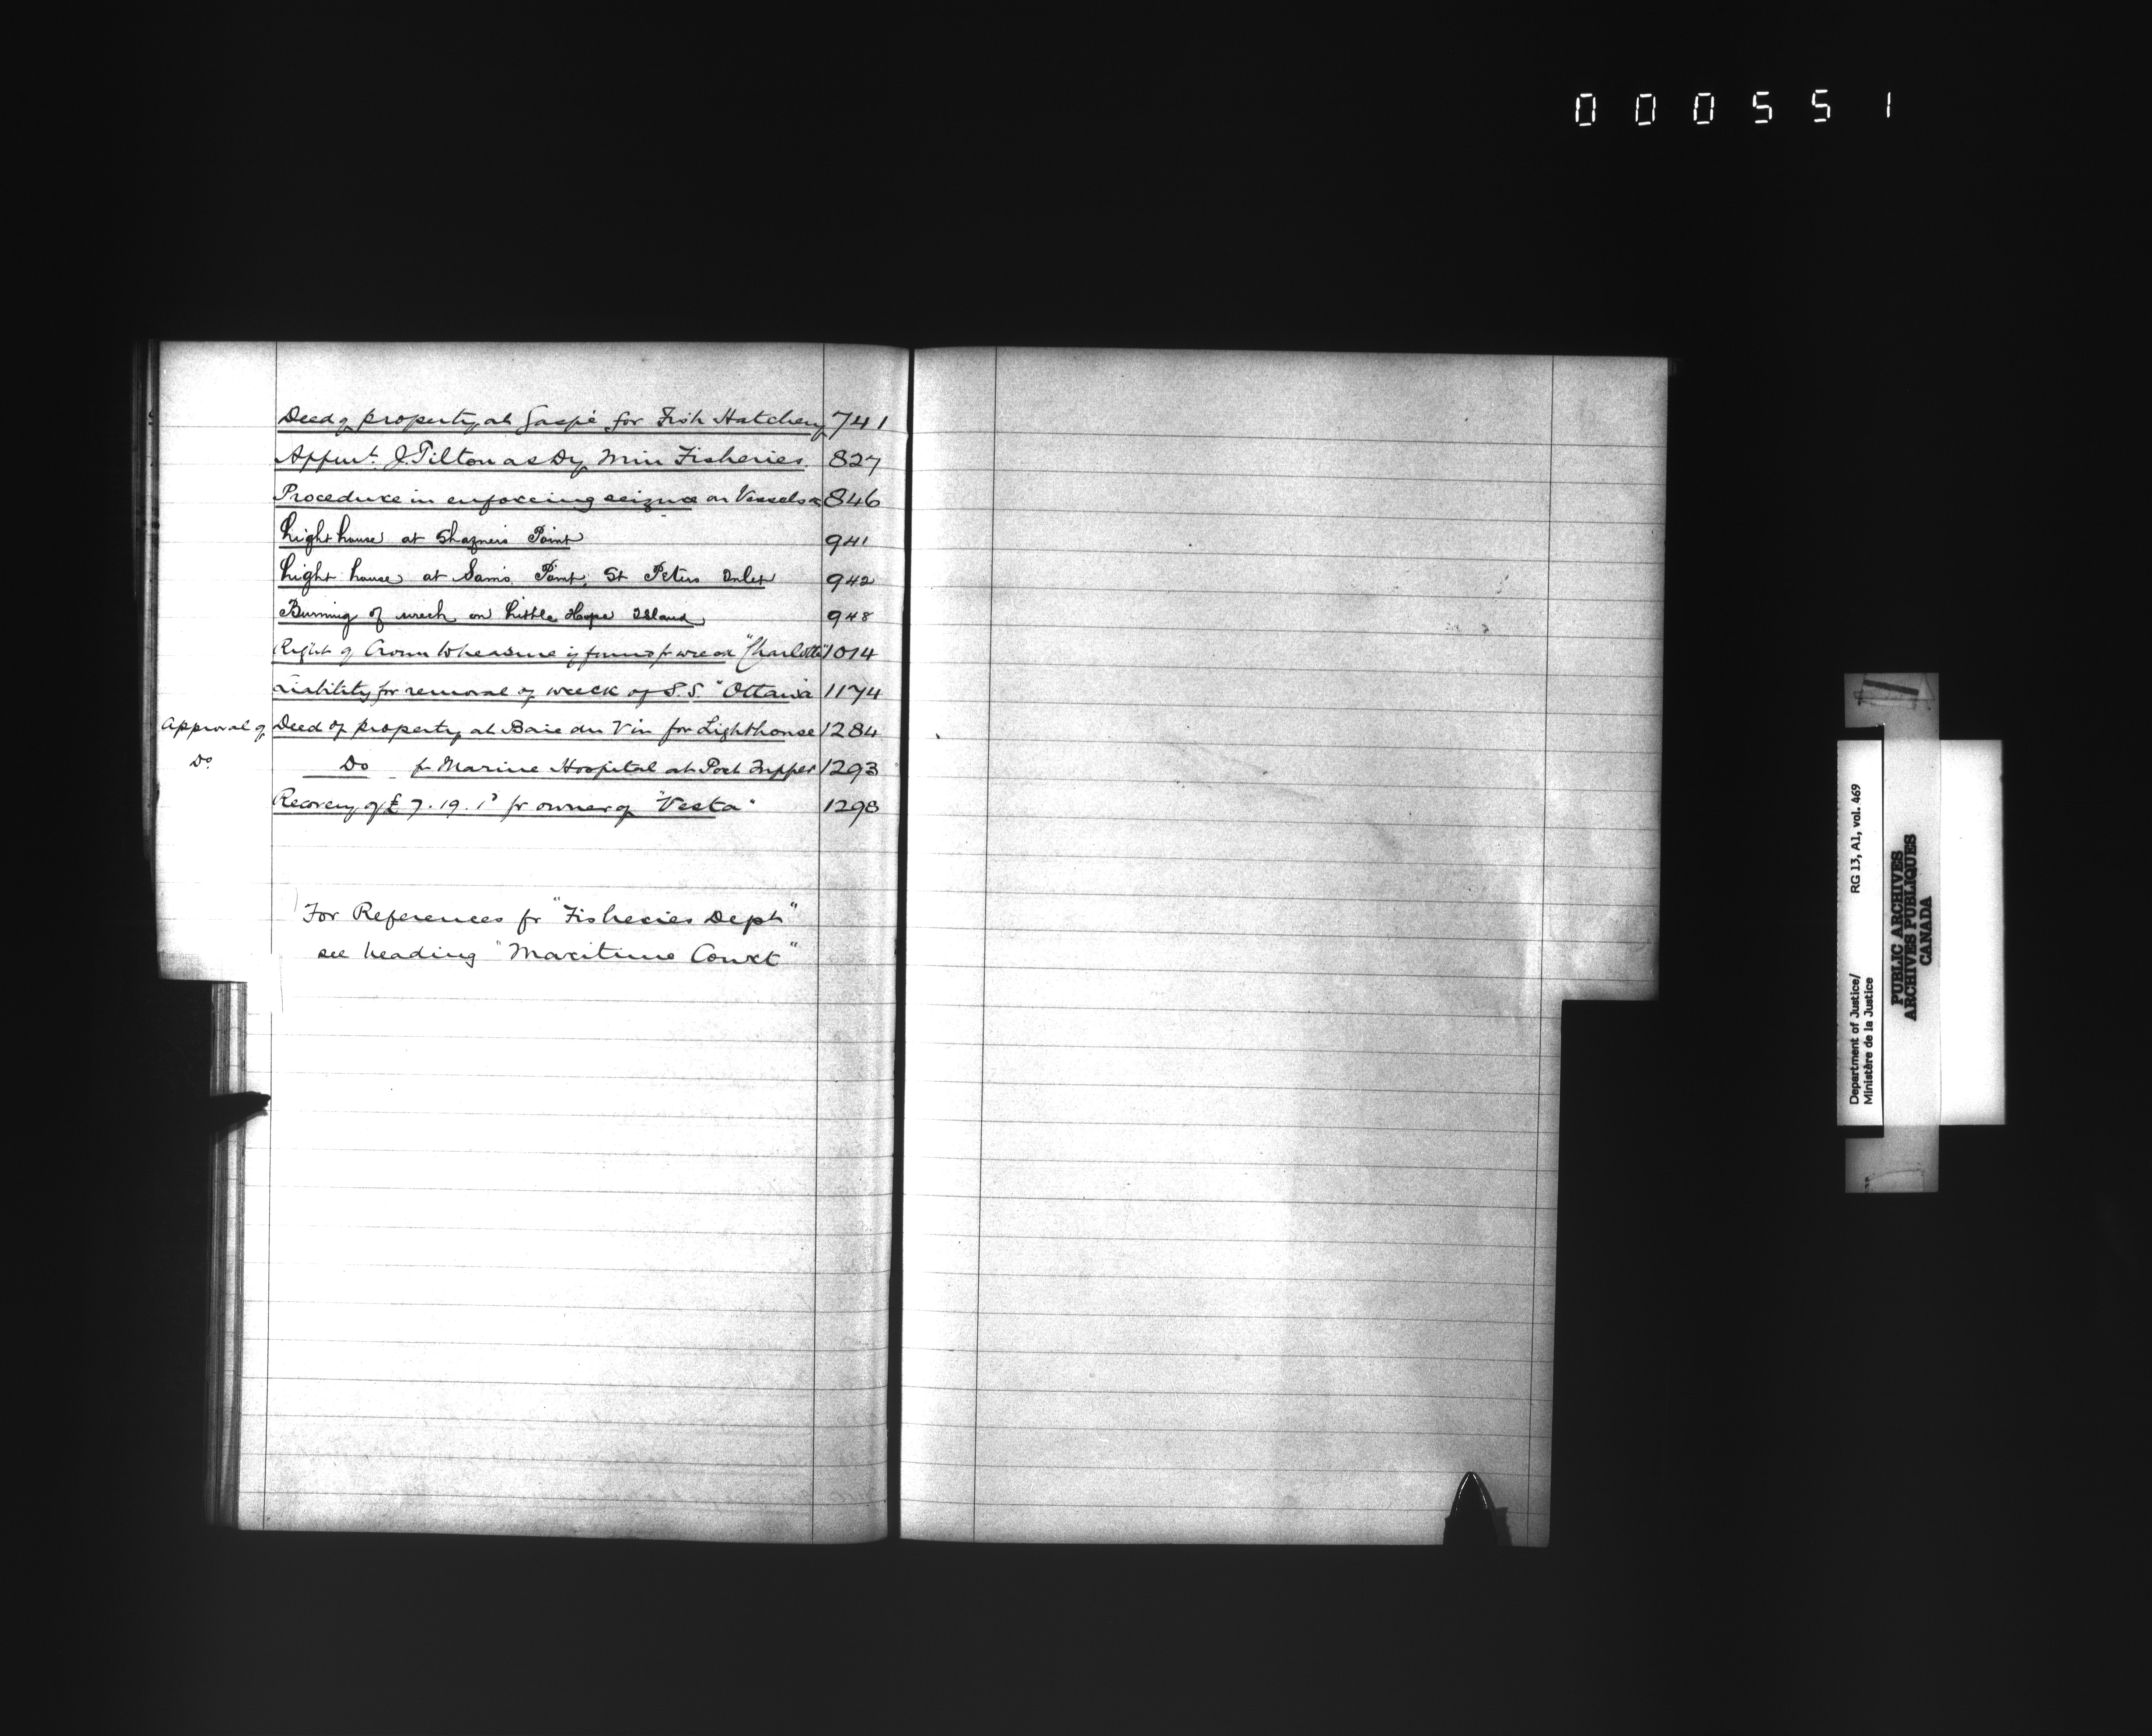 000551
Deed of property at Gaspé for Fish Hatchery 741
Appmt. J. Tilton as Dy Min Fisheries. 827
Procedure in enforcing seizure on Vessels & 846
Light house at Point 941
Light house at Sam's Point, St Peters Inlet 942
Burning of wreck on Little Hope Island 948
Right of Crown to treasure if found fr wreck "Charlotte" 1014
Liability for removal of wreck of S.S. "Ottawa 1174
Approval of Deed of property at Baie du Vin for Lighthouse 1284
Do Do fr Marine Hospital at Port 1293
Recovery of £ 7.19.1 fr owner of "Vesta" 1298
For References fr "Fisheries Dept"
see heading "Maritime Court"
Department of Justice/
Ministère de la Justice
RG 13, A1, vol. 469
PUBLIC ARCHIVES
ARCHIVES PUBLIQUES
CANADA